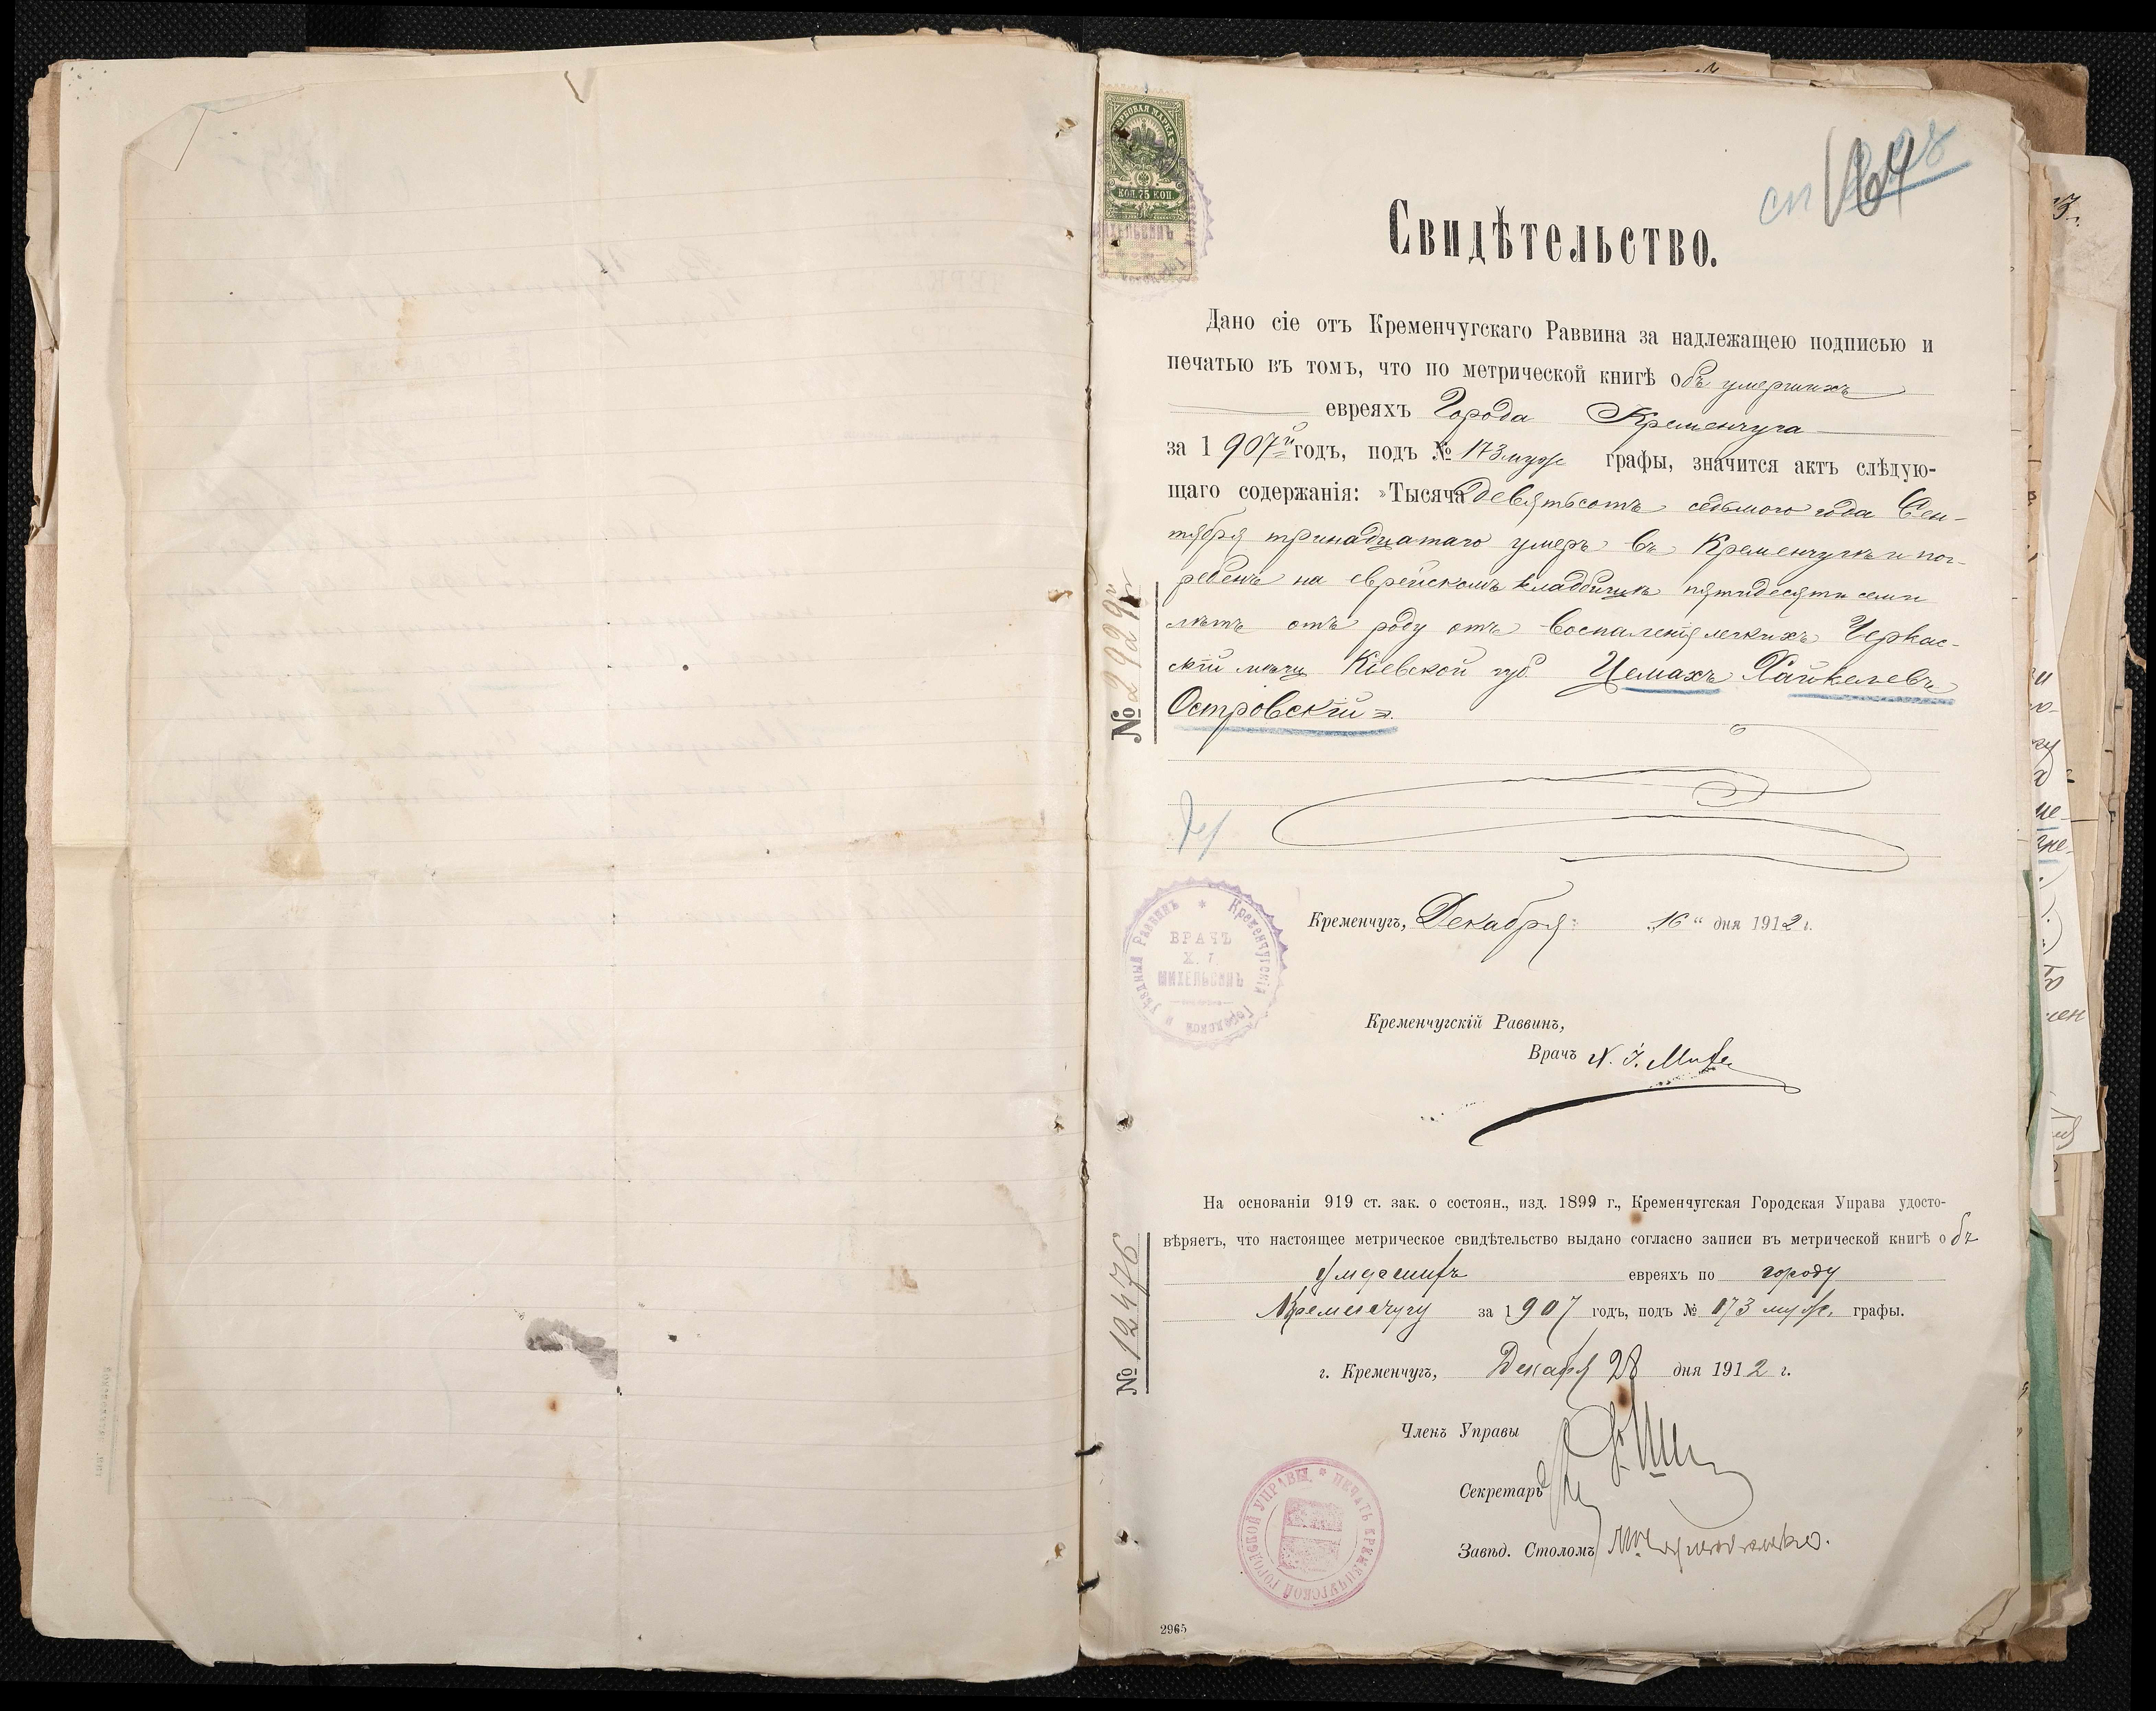 ГЕРБОВАЯ МАРКА
КОП. 75 КОП.
сп
164
Свидѣтельство.
Дано сіе отъ Кременчугскаго Раввина за надлежащею подписью и
печатью въ томъ, что по метрической книгѣ объ умершихъ
евреяхъ Города Кременчуга
за 1907й годъ, подъ № 173 муж графы, значится актъ слѣдую-
щаго содержанія: „Тысяча девятьсотъ седьмого года Сен-
тября тринадцатаго умеръ въ Кременчугѣ и пог-
ребенъ на еврейскомъ кладбищѣ пятидесяти семи
лѣтъ отъ роду отъ воспаленія легкихъ Черкас-
скій мѣщ Кіевской губ. Цемахъ Хайкелевъ
Островскій".
№ 2929
Кременчугъ, Декабря „16" дня 1912 г.
Кременчугскій Городской и Уѣздный Раввинъ *
ВРАЧЪ
Х. І.
МИХЕЛЬСОНЪ
Кременчугскій Раввинъ,
Врачъ Х. І. Михе
На основаніи 919 ст. зак. о состоян., изд. 1899 г., Кременчугская Городская Управа удосто-
вѣряетъ, что настоящее метрическое свидѣтельство выдано согласно записи въ метрической книгѣ объ
умершихъ евреяхъ по городу
Кременчугу за 1907 годъ, подъ № 173 муж. графы.
№ 12476
г. Кременчугъ, Декабря 28 дня 1912 г.
Членъ Управы
Секретарь
Завѣд. Столомъ
* ПЕЧАТЬ КРЕМЕНЧУГСКОЙ ГОРОДСКОЙ УПРАВЫ
2965